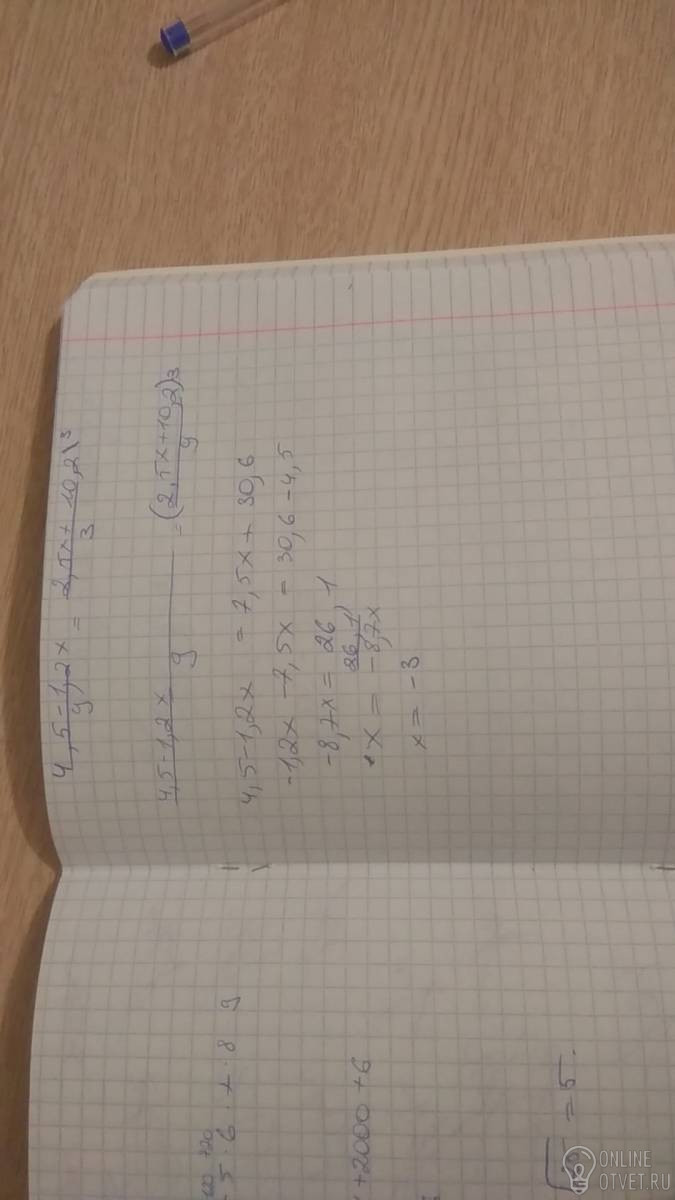 (4,5-1,2x)/9 = (2,5x+10,2\3)/3
(4,5-1,2x)/9 = (2,5x+10,2)3/9
4,5-1,2x = 7,5x+30,6
-1,2x -7,5x = 30,6-4,5
-8,7x = 26,1
x = 26,1/-8,7x
x = -3
+20
5 · 6 · 7 · 8 9
+2000 +6
= 5.
ONLINE
OTVET.RU